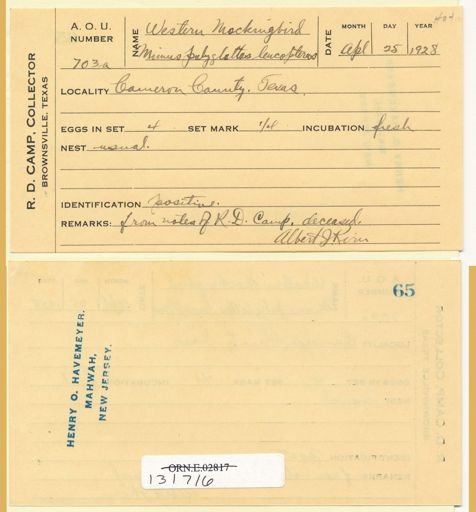 #04
A. O. U. NUMBER 703a
NAME Western Mockingbird
Mimus polyglottos leucopterus
DATE MONTH DAY YEAR
Apl 25 1928
R. D. CAMP, COLLECTOR
BROWNSVILLE, TEXAS
LOCALITY Cameron County, Texas.
EGGS IN SET 4 SET MARK 1/4 INCUBATION fresh
NEST usual.
IDENTIFICATION positive.
REMARKS: from notes of R. D. Camp, deceased.
Albert J Kirn
65
HENRY O. HAVEMEYER.
MAHWAH,
NEW JERSEY.
ORN.E.02817
131716